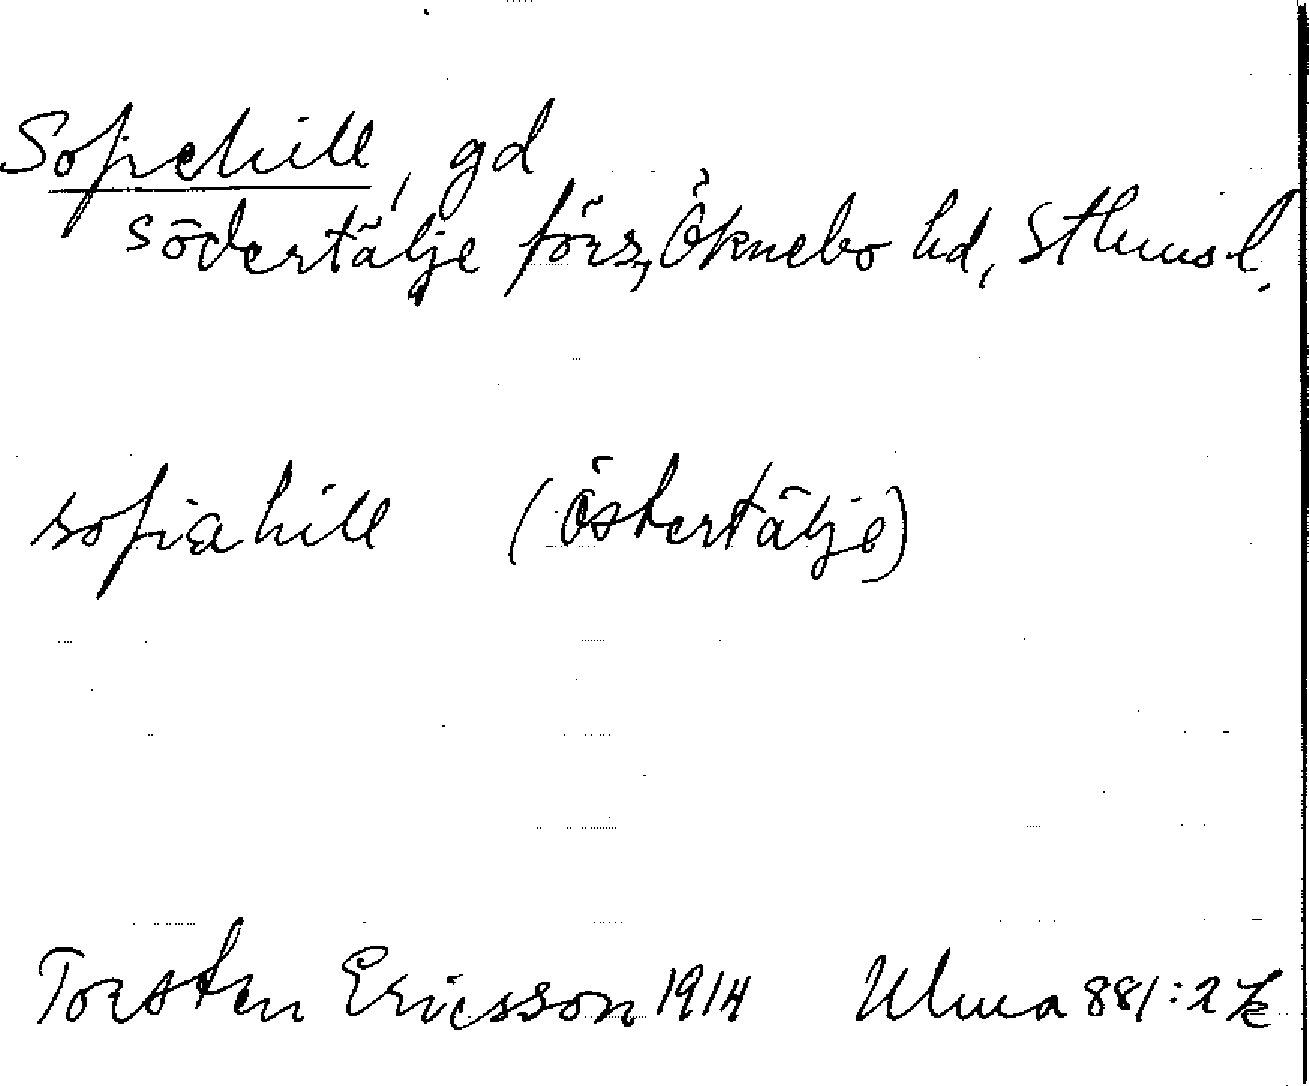 Sofiehill, gd
Södertälje förs, Öknebo hd, Sthms l.
sofiahill (östertälje)
Torsten Ericsson 1914 Ulma 881:2